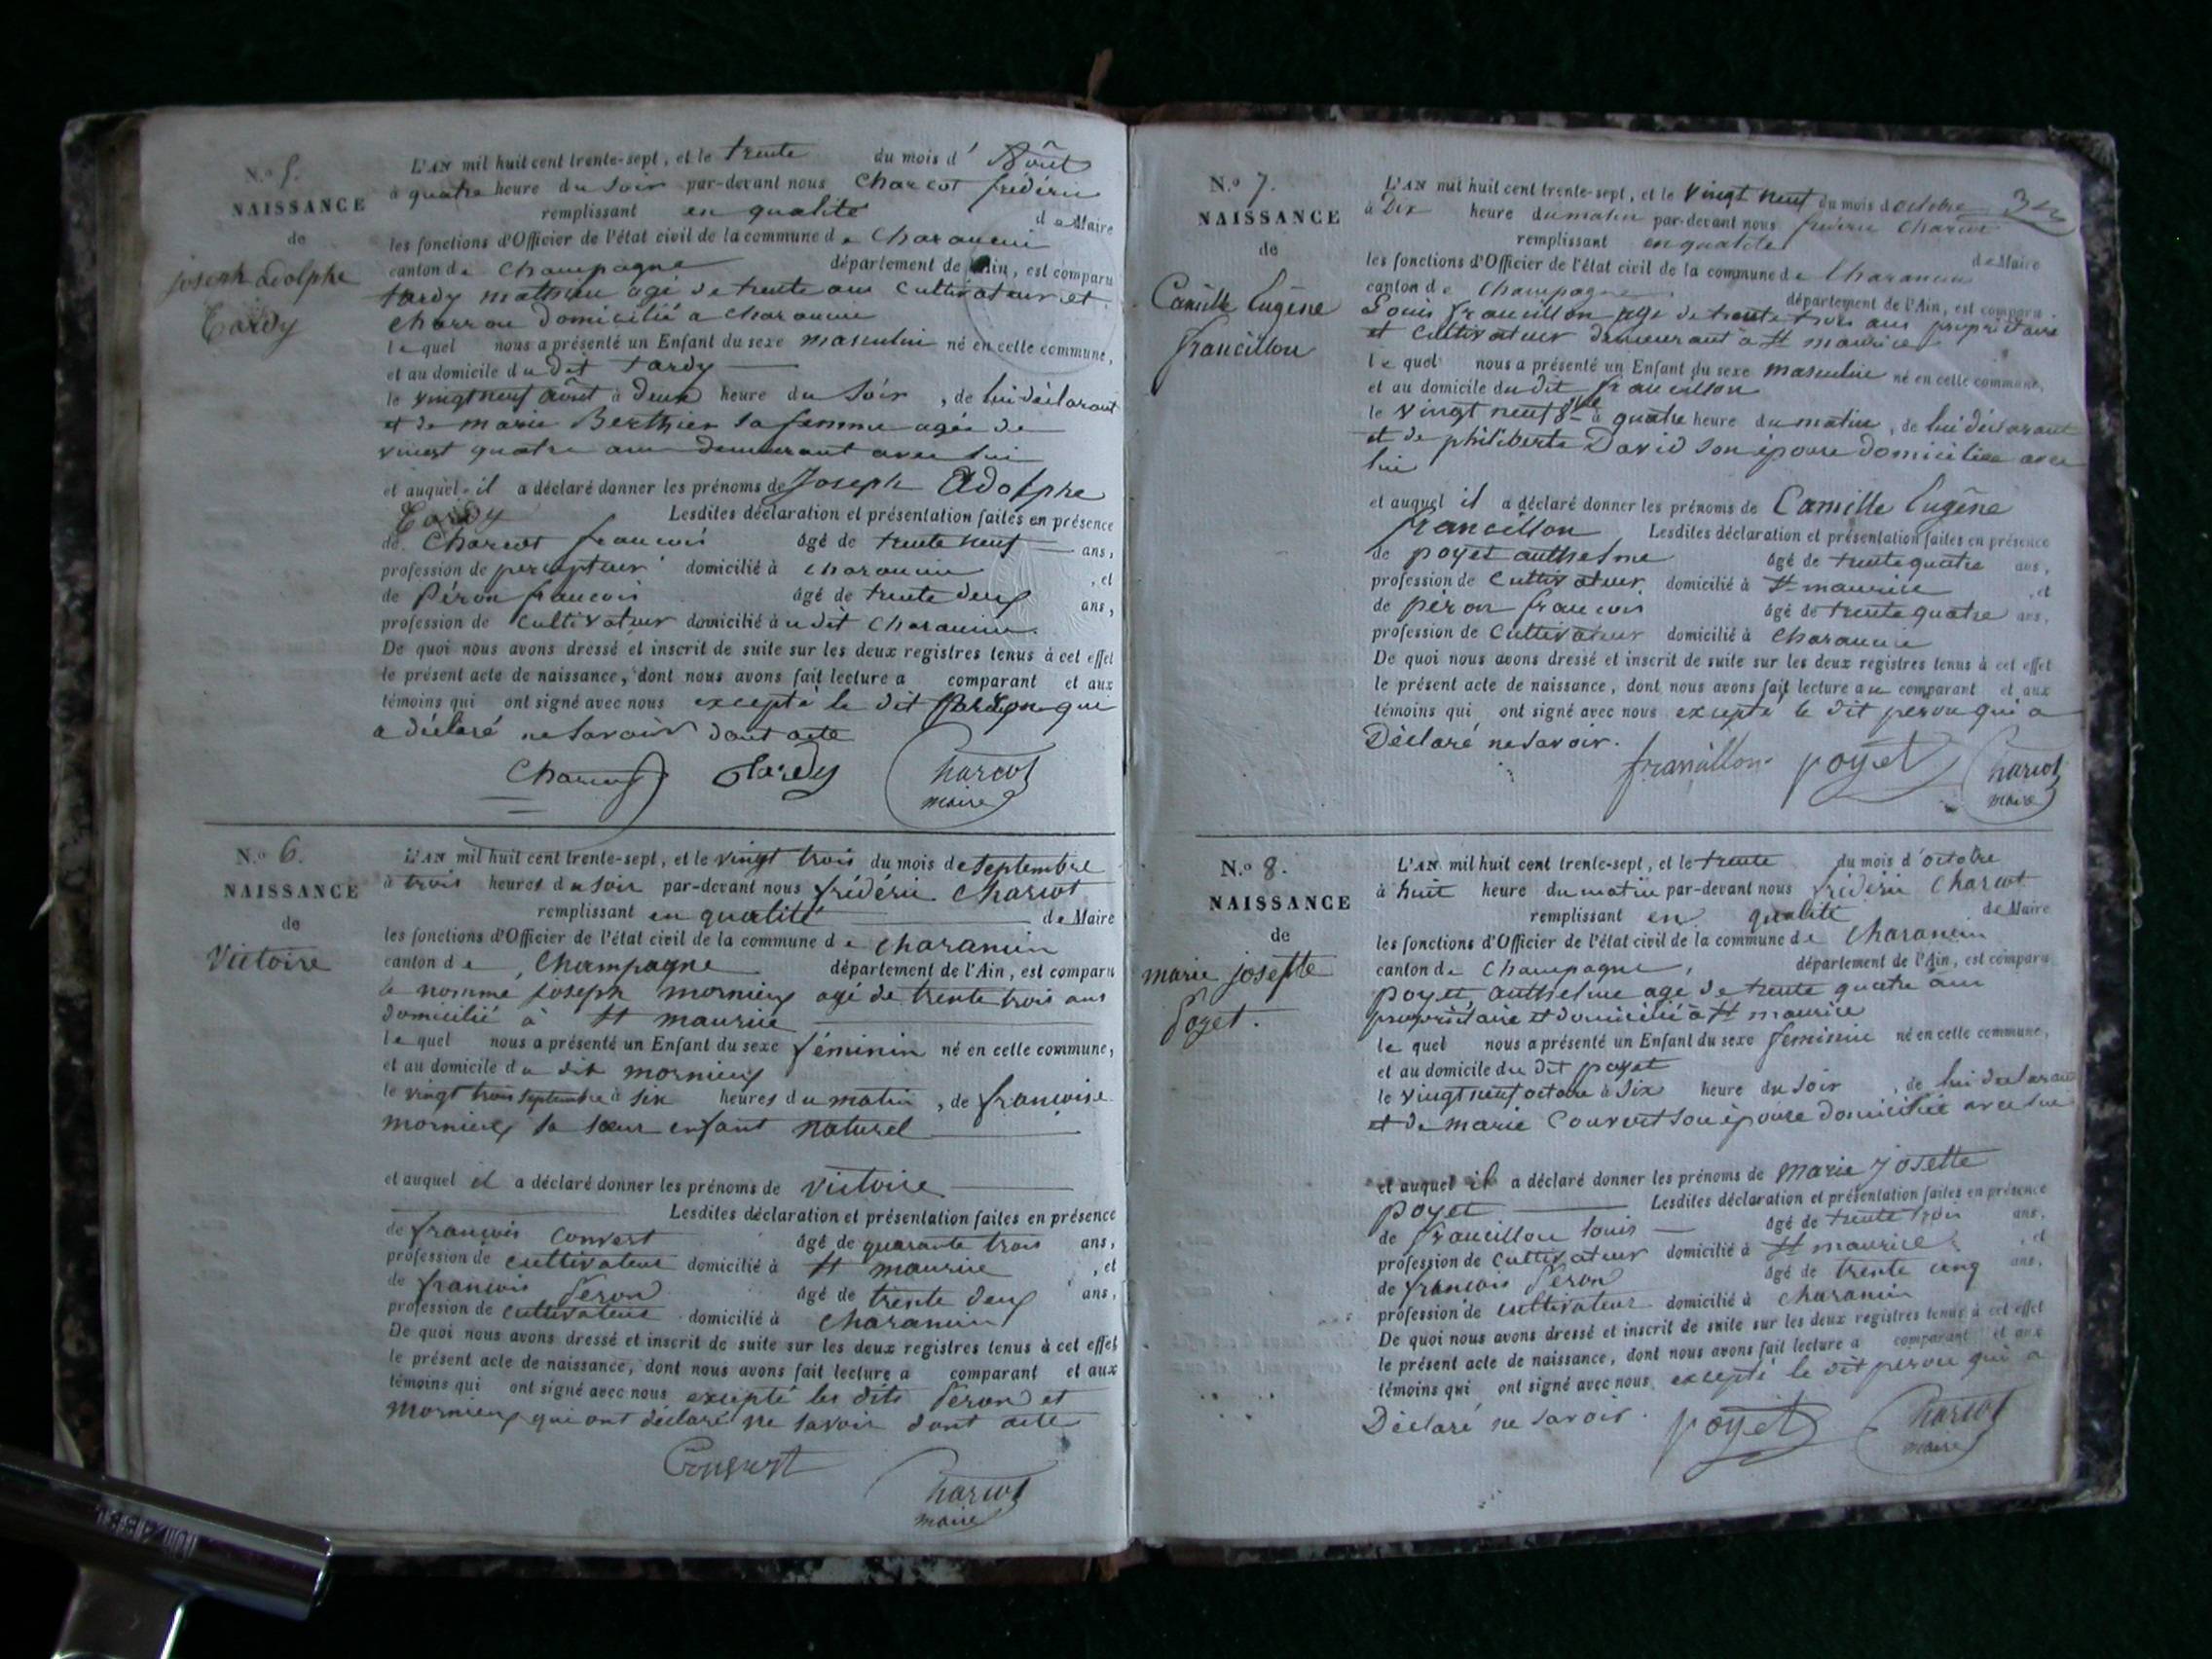 N.o 5.
NAISSANCE
de
joseph adolphe
Tardy
L'AN mil huit cent trente-sept, et le trente du mois d' Août
à quatre heure du soir par-devant nous Charcot frédéric
remplissant en qualité de Maire
les fonctions d'Officier de l'état civil de la commune de Charancin
canton de Champagne département de l'Ain, est comparu
tardy mathieu agé de trente ans Cultivateur et
charron domicilié a charancin
lequel nous a présenté un Enfant du sexe masculin né en celle commune,
et au domicile du dit tardy
le vingt neuf août à deux heure du soir, de lui déclarant
et de marie Berthier sa femme agée de
vingt quatre ans demeurant avec lui
et auquel il a déclaré donner les prénoms de Joseph Adolphe
Tardy Lesdites déclaration et présentation faites en présence
de Charcot francois âgé de trente neuf ans,
profession de percepteur domicilié à charancin, et
de Péron francois âgé de trente deux ans,
profession de cultivateur domicilié à u dit Charancin.
De quoi nous avons dressé et inscrit de suite sur les deux registres tenus à cet effet
le présent acte de naissance, dont nous avons fait lecture a comparant et aux
témoins qui ont signé avec nous excepté le dit qui
a déclaré ne savoir dont acte
Charcot Tardy Charcot
maire
N.o 6.
NAISSANCE
de
Victoire
L'AN mil huit cent trente-sept, et le vingt trois du mois de septembre
à trois heures du soir par-devant nous frédéric Charcot
remplissant en qualité de Maire
les fonctions d'Officier de l'état civil de la commune de charancin
canton de Champagne département de l'Ain, est comparu
le nommé joseph mornieux agé de trente trois ans
domicilié à St maurice
lequel nous a présenté un Enfant du sexe féminin né en celle commune,
et au domicile du dit mornieux
le vingt trois septembre à six heures du matin, de francoise
mornieux sa sœur enfant naturel
et auquel il a déclaré donner les prénoms de victoire
Lesdites déclaration et présentation faites en présence
de francois convert âgé de quarante trois ans,
profession de cultivateur domicilié à St maurice, et
de francois Péron âgé de trente deux ans,
profession de cultivateur domicilié à charancin
De quoi nous avons dressé et inscrit de suite sur les deux registres tenus à cet effet
le présent acte de naissance, dont nous avons fait lecture a comparant et aux
témoins qui ont signé avec nous excepté les dits Péron et
mornieux qui ont déclaré ne savoir dont acte
Convert Charcot
maire
3
N.o 7.
NAISSANCE
de
Camille Eugêne
francillon
L'AN mil huit cent trente-sept, et le vingt neuf du mois d octobre
à Dix heure du matin par-devant nous frédéric Charcot
remplissant en qualité de Maire
les fonctions d'Officier de l'état civil de la commune de Charancin
canton de Champagne département de l'Ain, est comparu
Louis francillon age de trente trois ans propriétaire
et cultivateur demeurant à St maurice
lequel nous a présenté un Enfant du sexe masculin né en celle commune,
et au domicile du dit francillon
le vingt neuf 8bre à quatre heure du matin, de lui déclarant
et de philiberte David son épouse domiciliée avec
lui
et auquel il a déclaré donner les prénoms de Camille Eugêne
francillon Lesdites déclaration et présentation faites en présence
de poyet anthelme âgé de trente quatre ans,
profession de cultivateur domicilié à St maurice, et
de péron francois âgé de trente quatre ans,
profession de cultivateur domicilié à Charancin
De quoi nous avons dressé et inscrit de suite sur les deux registres tenus à cet effet
le présent acte de naissance, dont nous avons fait lecture au comparant et aux
témoins qui ont signé avec nous excepté le dit peron qui a
Déclaré ne savoir.
francillon poyet Charcot
maire
N.o 8.
NAISSANCE
de
marie josette
Poyet.
L'AN mil huit cent trente-sept, et le trente du mois d'octobre
à huit heure du matin par-devant nous frédéric Charcot
remplissant en qualité de Maire
les fonctions d'Officier de l'état civil de la commune de Charancin
canton de Champagne, département de l'Ain, est comparu
poyet anthelme age de trente quatre ans
propriétaire et domicilié à St maurice
lequel nous a présenté un Enfant du sexe feminin né en celle commune,
et au domicile du dit poyet
le vingt neuf octobre à Six heure du soir, de lui declarant
et de marie Convert son épouse domiciliée avec lui
et auquel il a déclaré donner les prénoms de marie josette
poyet Lesdites déclaration et présentation faites en présence
de francillon louis âgé de trente trois ans,
profession de cultivateur domicilié à St maurice, et
de francois Peron âgé de trente cinq ans,
profession de cultivateur domicilié à charancin
De quoi nous avons dressé et inscrit de suite sur les deux registres tenus à cet effet
le présent acte de naissance, dont nous avons fait lecture a comparant et aux
témoins qui ont signé avec nous excepté le dit peron qui a
Déclaré ne savoir.
poyet Charcot
maire